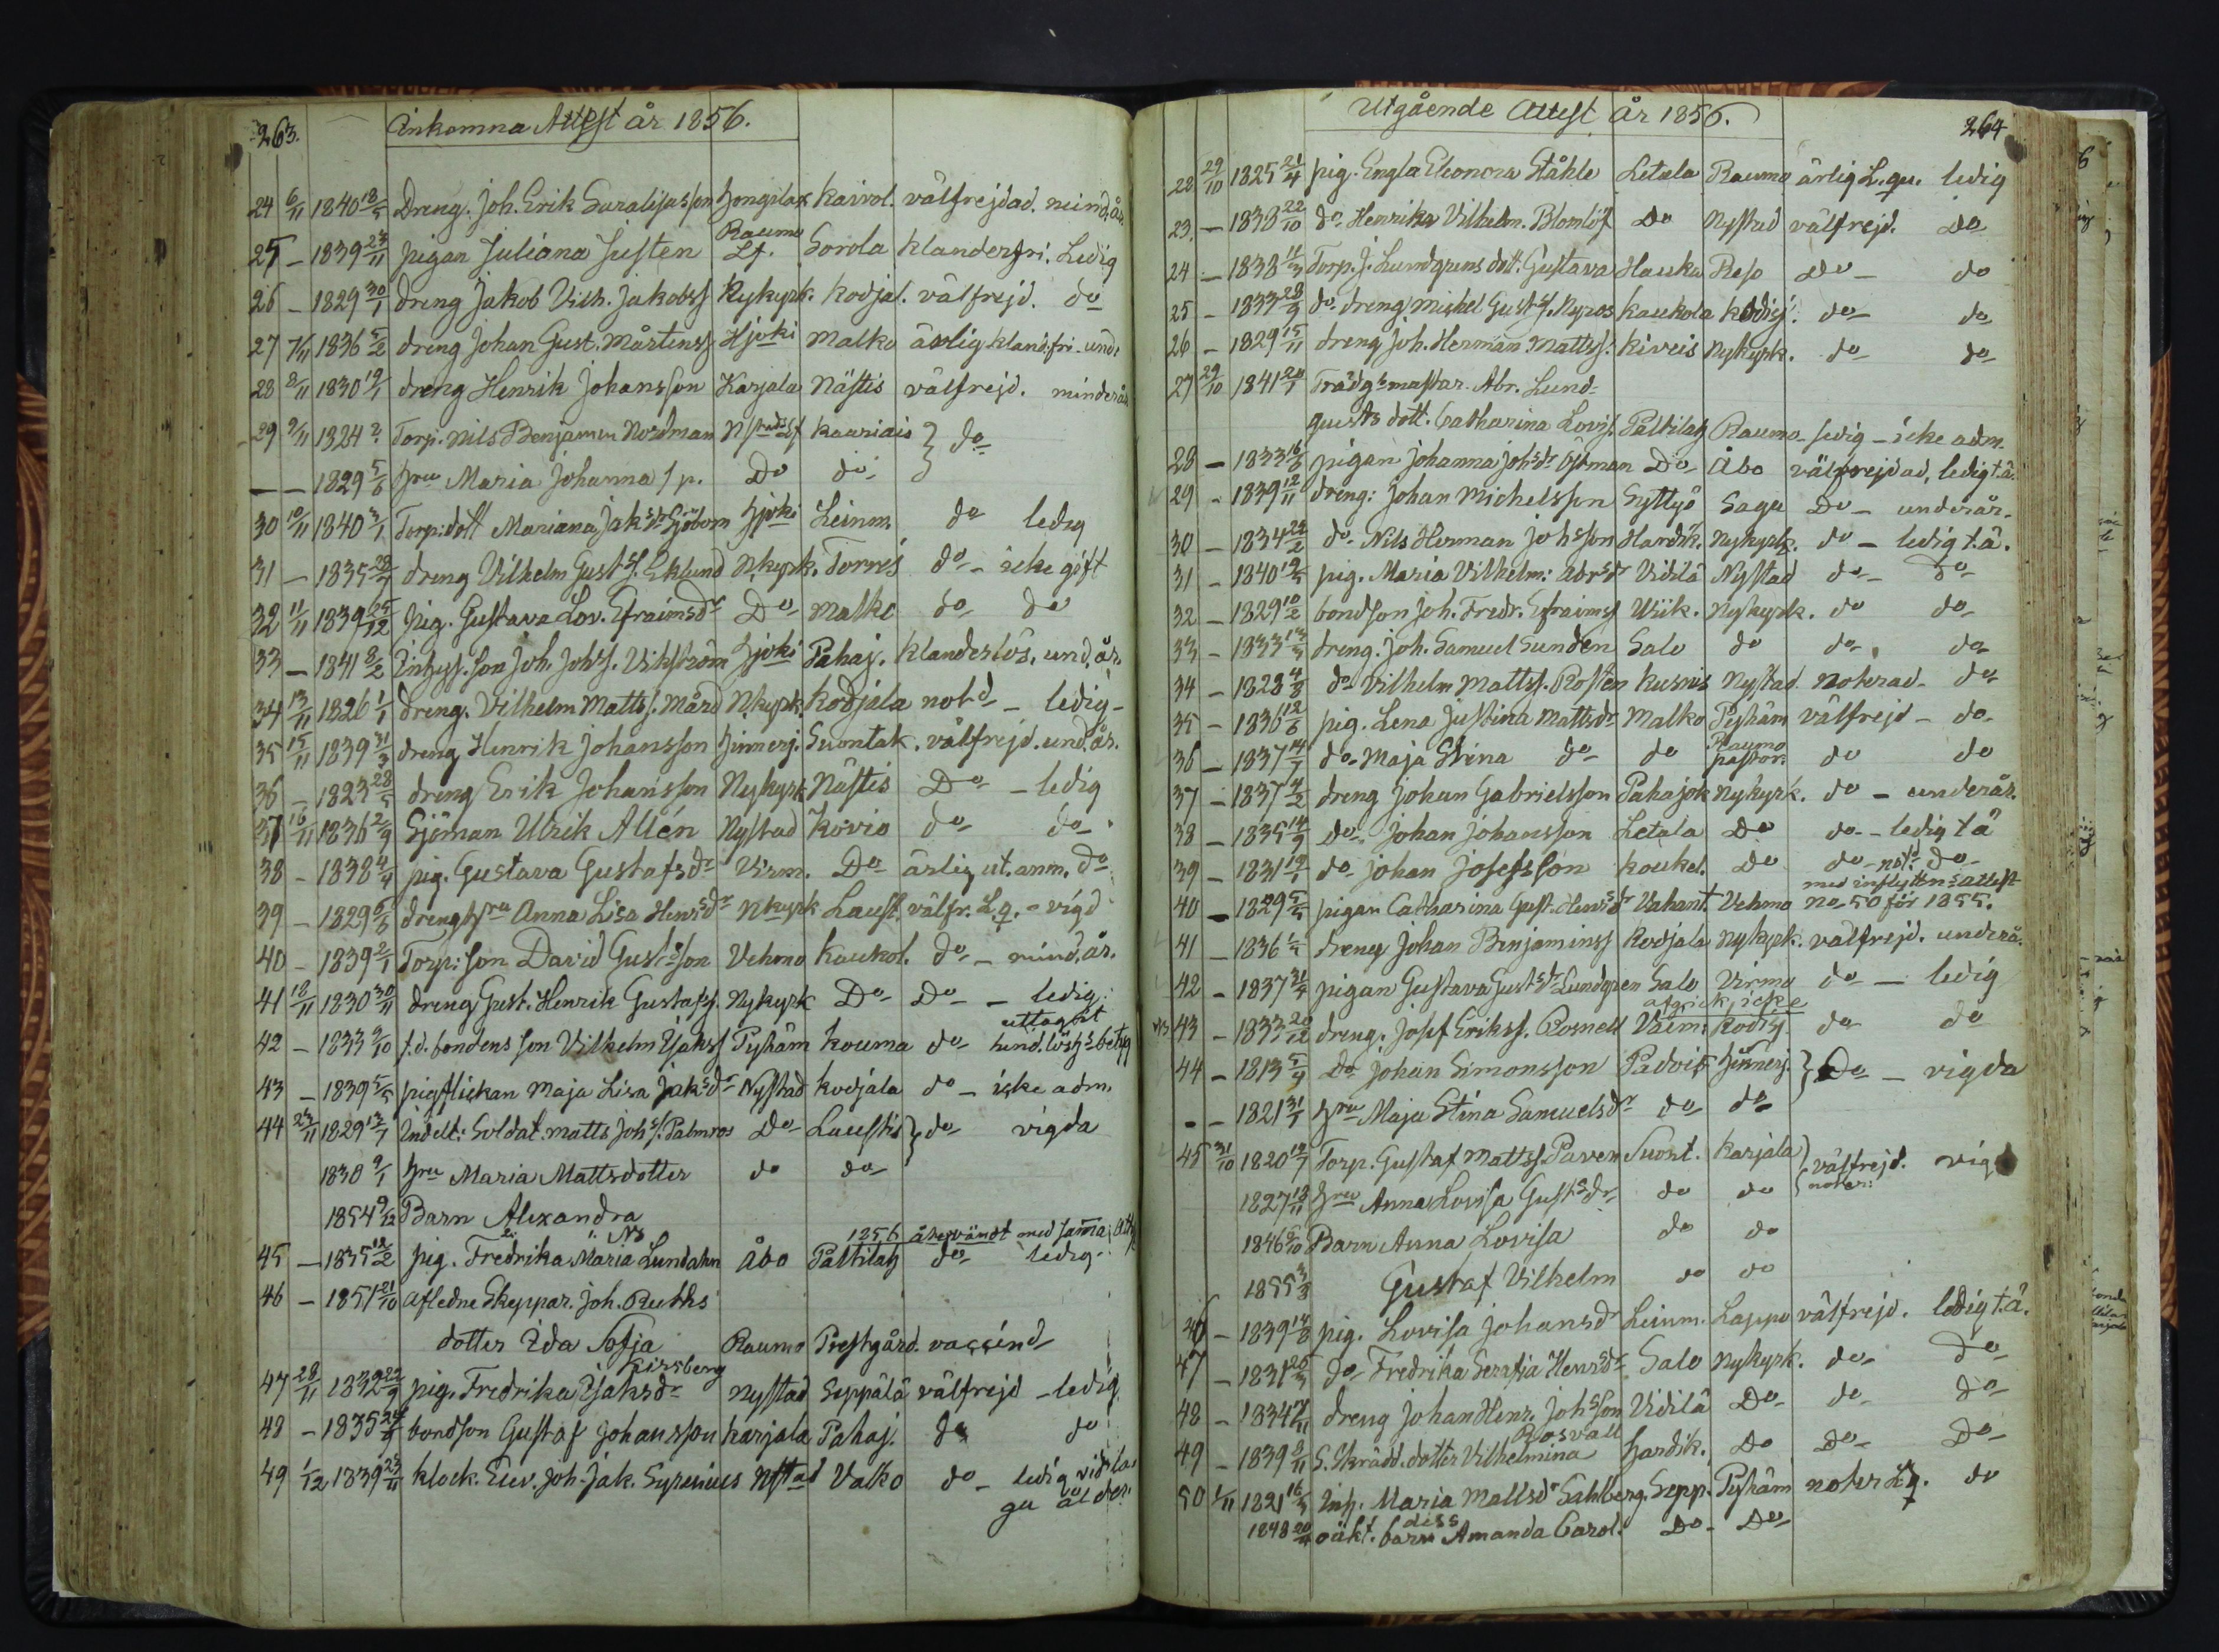 263.
Inkomna Attest år 1856.
24 6/11 1840 18/5 Dreng. Joh. Erik Saraliasson Hongilax Kaivol. välfrejdad. mind.år.
25 - 1839 23/11 pigan Juliana Justen Raumo Lf. Sorola klanderfri. Ledig
26 - 1829 30/1 dreng Jakob Vilh. Jakobss Nykyrk. Kodjal. välfrejd. do
27 7/11 1836 5/2 dreng Johan Gust. Mårtenss Hjoki Malko ärlig kland.fri - und:
28 8/11 1830 19/1 dreng Henrik Johansson Karjala Nästis välfrejd. minderår.
29 9/11 1824 ? Torp. Nils Benjamin Nordman Nstads Lf Kauriais } do
- - 1829 5/6 Hru Maria Johanna / p. Do do
30 10/11 1840 3/1 Torp: dott Mariana Jaksdr Sjöbom Hjoki Leinm. do ledig
31 - 1835 28/7 dreng Vilhelm Gusts. Eklund Nkyrk. Tornis do - icke gift
32 11/11 1839 25/12 pig. Gustava Lov. Efraimsdr Do Malko do do
33 - 1841 8/2 Inhys. son Joh. Johs. Vikström Hjoki Pahaj. klanderlös. und.år.
34 13/11 1826 1/1 dreng. Vilhelm Matts. Mård Nkyrk. Kodjala notd - ledig -
35 15/11 1839 31/3 dreng Henrik Johansson Hinnerj. Suontak. välfrejd. und.år.
36 - 1823 28/5 dreng Erik Johansson Nykyrk Nästis Do - ledig
37 16/11 1836 2/9 Sjöman Ulrik Allén Nystad Kovio do do
38 - 1838 4/4 pig. Gustava Gustafsdr Virm. Do ärlig ut. anm. do
39 - 1829 6/6 drenghru Anna Lisa Henrsdr Nkyrk Laust. välfr. L.q. - vigd
40 - 1839 2/1 Torp: son David Gustsson Vehmo Kaukol. do - mind.år.
41 18/11 1830 30/11 dreng Gust. Henrik Gustafs. Nykyrk Do Do - ledig:
uttagit
42 - 1833 9/10 f.d. bondens son Vilhelm Isakss Pyhäm Kouma do hind.löshs betyg
43 - 1839 5/5 pigflickan Maja Lisa Jaksdr Nystad Kodjala do - icke adm.
44 23/11 1829 13/7 Indelt: Soldat. Matts Johs. Palmros Do Laustis } do vigda
1830 9/1 Hru Maria Mattsdotter do do
1854 9/12 Barn Alexandra
1856 återvändt med samma att
45 - 1835 12/2 pig. Fredrika Maria Lundahn Åbo Paltilax do ledig
46 - 1851 21/10 afledne Skeppar. Joh. Ruths
dotter Ida Sofja Raumo Prestgård. vaccind
Kirsberg
47 28/11 1832 22/9 pig. Fredrika Isaksdr Nystad Seppälä välfrejd - ledig
48 - 1835 24/9 bondson Gustaf Johansson Karjala Pahaj. do do
49 1/12 1839 23/11 klock. Elev. Joh. Jak. Syrenius Nstad Valko do - ledig vidtla
ga ålder.
Utgående Attest År 1856.
264
22 29/10 1825 21/4 pig. Engla Eleonora Ståhle Letala Raumo ärlig L.qu. ledig
23. - 1838 22/10 do. Henrika Vilhelm. Blomlöf Do Nystad välfrejd. do
24 - 1838 11/3 Torp. J. Lundgrens dott. Gustava Hauka Reso Do - do
25 - 1833 28/9 do. dreng Mickel Gusts. Nyroos Kaukola Kodisj. do do
26 - 1829 15/11 dreng Joh. Herman Mattss. Kiveis Nykyrk. do do
27 29/10 1841 20/1 Trädgsmästar. Abr. Lund-
quists dott. Catharina Lovis. Paltilax Raumo - ledig - icke adm.
28 - 1833 16/6 pigan Johanna Johsdr Öhman Do Åbo välfrejdad, ledig t.ä.
29 - 1839 12/11 dreng: Johan Michelsson Syttyö Sagu Do - underår.
30 - 1834 22/2 do. Nils Herman Johsson Hardik. Nykyrk. do - ledig t.ä.
31 - 1840 19/5 pig. Maria Vilhelm: Abrsdr Vidilä Nystad do do
32 - 1829 10/2 bondson Joh. Fredr. Efraimss Wiik. Nykyrk. do do
33 - 1833 13/3 dreng. Joh. Samuel Sunden Salo do do. do
34 - 1828 4/8 do Vilhelm Mattss. Rosten Kusnis Nystad noterad. do
35 - 1836 12/6 pig. Lena Justina Mattsdr Malko Pyhäm välfrejd - do
36 - 1837 14/7 do Maja Stina do do Raumo pastor: do do
37 - 1837 4/2 dreng Johan Gabrielsson Pahajok Nykyrk. do - underår.
38 - 1835 14/9 do Johan Johansson Letala Do do - ledig t ä
39 - 1831 19/1 do Johan Josefsson Koukel. Do do - notd do
med inflyttns attest
40 - 1829 5/5 pigan Catharina Gust. Henrsdr Vahant. Vehmo no 50 för 1855.
41 - 1836 1/2 dreng Johan Benjaminss Kodjala Nykyrk. välfrejd. underå.
42 - 1837 31/7 pigan Gustava Gustsdr Lundgren Salo Virmo do - ledig
afgick icke
43 - 1833 20/12 dreng. Josef Erikss. Rosnell Vaim: Kodisj. do do
44 - 1813 5/4 Do Johan Simonsson Padvis Hinnerj. } Do - vigda
- - 1821 31/7 Hru Maja Stina Samuelsdr do do
45 31/10 1820 12/7 Torp. Gustaf Mattss. Paven Suont. Karjala } välfrejd. vigd
noter:
1827 13/11 Hru Anna Lovisa Gustsdr do do
1846 6/10 Barn Anna Lovisa do do
1855 3/3 Gustaf Vilhelm do do
46 - 1839 14/8 pig. Lovisa Johansdr Leinm. Lappo välfrejd. ledig t.ä.
47 - 1831 20/3 do Fredrika Serafia Henrsdr Salo Nykyrk. do do
48 - 1834 7/11 dreng Johan Henr. Johsson Vidilä Do do do
Rosvall
49 - 1839 2/11 S. Skrädd. dotter Vilhelmina Hardik. Do Do Do
50 1/11 1821 16/3 Inh. Maria Mattsdr Sahlberg. Sepp. Pyhäm noter L.q. do
diss
1848 20/11 oäkt. barn Amanda Carol. Do Do